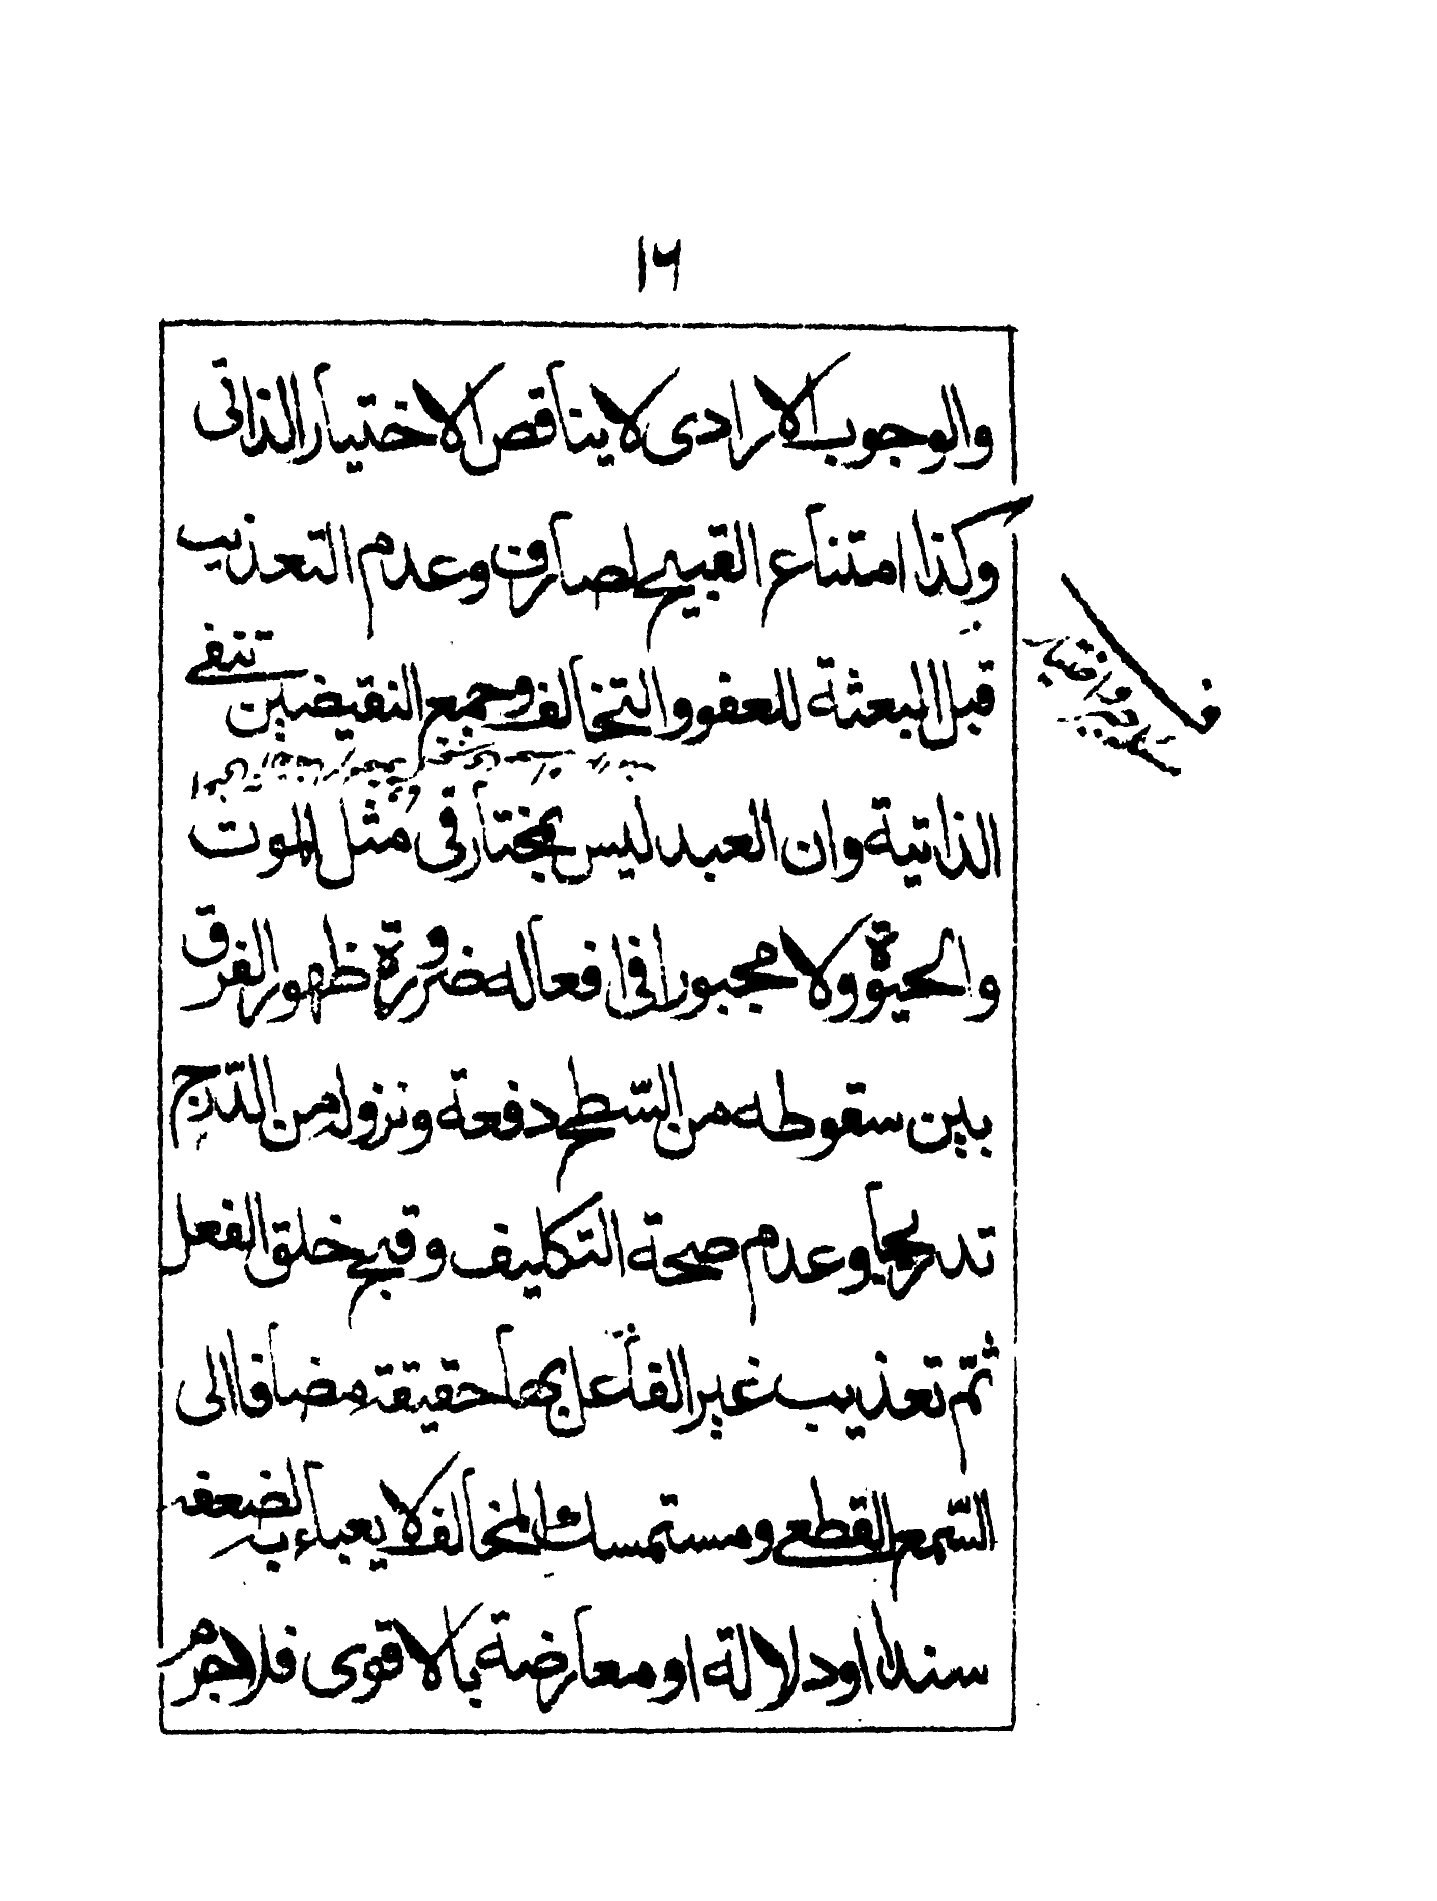 ١٦
والوجوب الارادى لا يناقض الاختيار الذاتى
وكذا امتناع القبيح لصارف وعدم التعذيب
قبل البعثة للعفو والتخالف وجميع النقيضين تنفى
الذاتية وان العبد ليس بمختار فى مثل الموت
والحيوة ولا مجبورا فى افعاله ضرورة ظهور الفرق
بين سقوطه من السّطح دفعة ونزوله من الدّرج
تدريجا وعدم صحة التكليف وقبح خلق الفعل
ثمّ تعذيب غير الفاعل بها حقيقة مضافا الى
السّمع القطعى ومستمسك المخالف لا يعباء به لضعفه
سندا او دلالة او معارضة بالاقوى فلا جرم